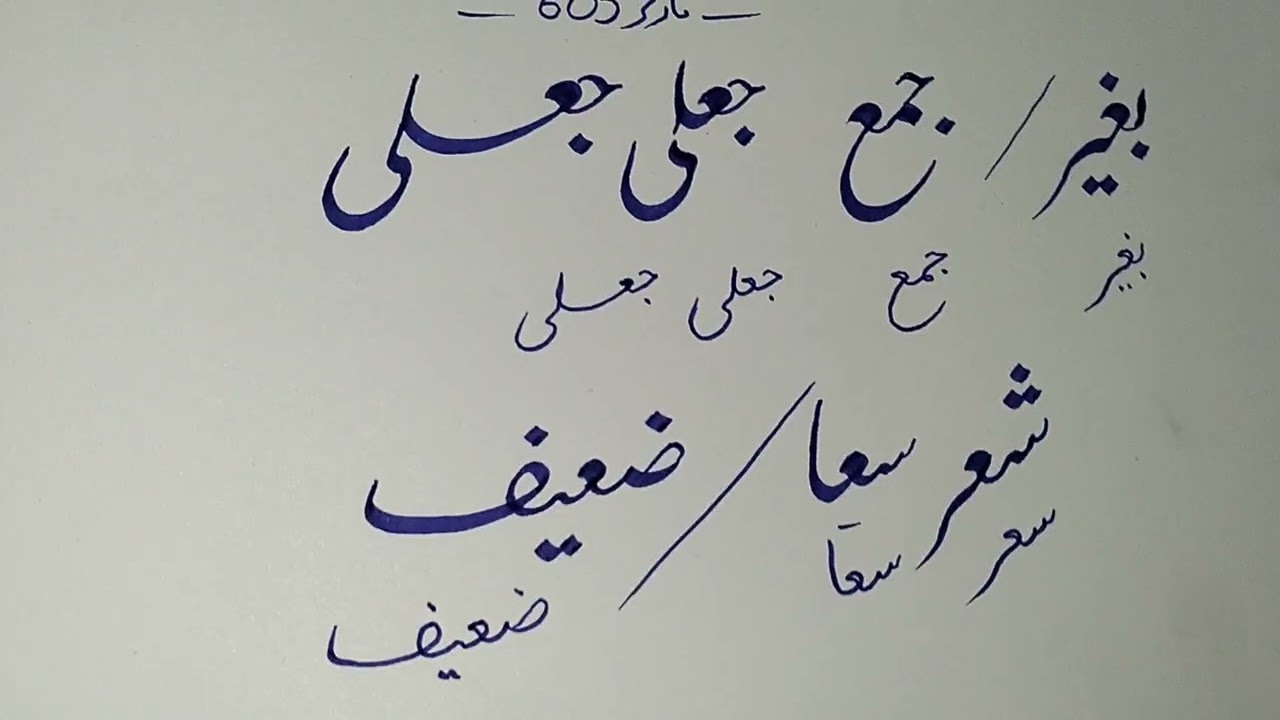 — مارکر 605 —
بغیر / جمع جعلی جعلی
بغیر جمع جعلی جعلی
شعر سعا / ضعیف
سعر سعا
ضعیف